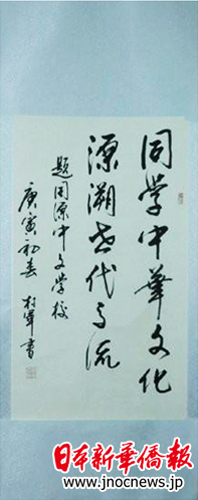 同学中華文化
源溯世代
题同源中文学校
庚寅初春
書
日本新華僑報
www.jnocnews.jp